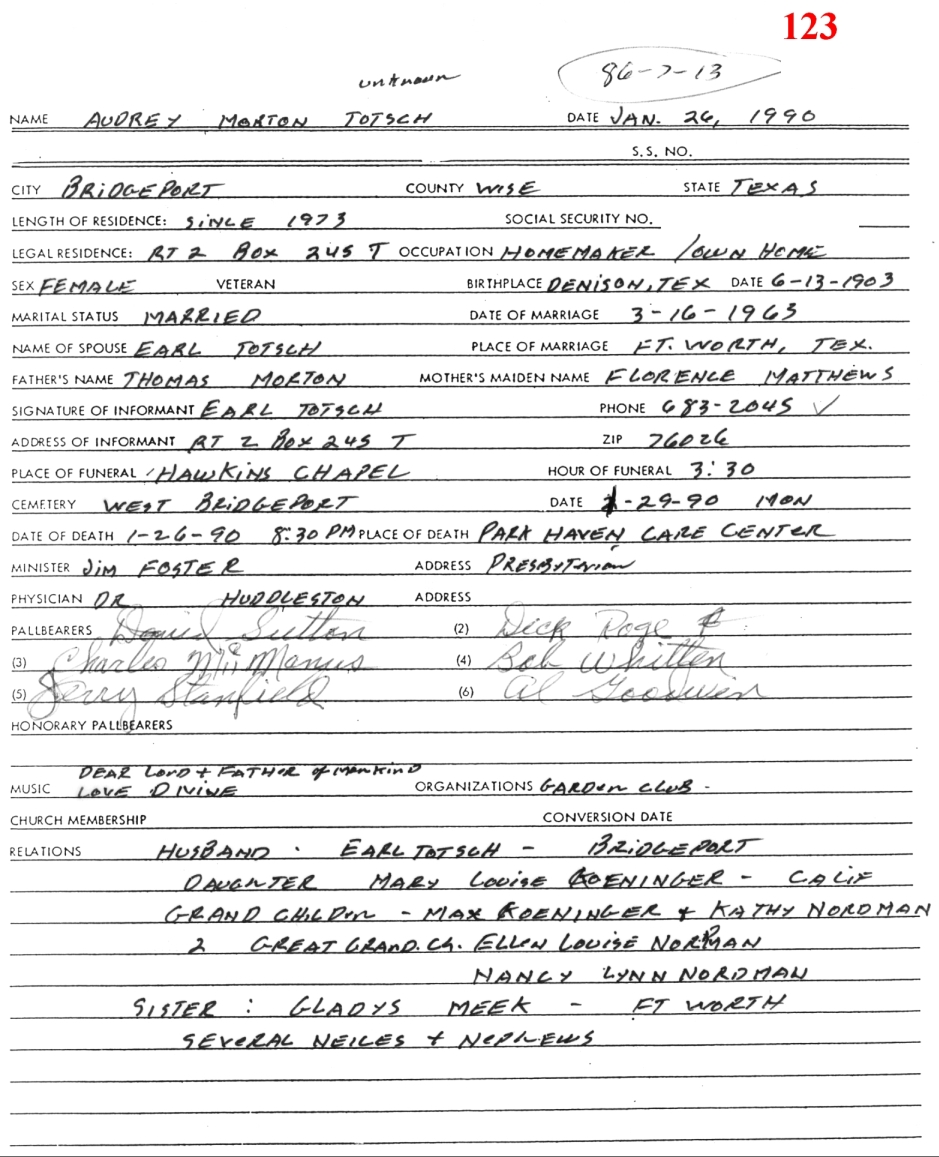 123
unknown
86-7-13
NAME AUDREY MORTON TOTSCH DATE JAN. 26, 1990
S.S. NO.
CITY BRIDGEPORT COUNTY WISE STATE TEXAS
LENGTH OF RESIDENCE: SINCE 1973 SOCIAL SECURITY NO.
LEGAL RESIDENCE: RT 2 BOX 245 T OCCUPATION HOMEMAKER / OWN HOME
SEX FEMALE VETERAN BIRTHPLACE DENISON, TEX DATE 6-13-1903
MARITAL STATUS MARRIED DATE OF MARRIAGE 3-16-1963
NAME OF SPOUSE EARL TOTSCH PLACE OF MARRIAGE FT. WORTH, TEX.
FATHER'S NAME THOMAS MORTON MOTHER'S MAIDEN NAME FLORENCE MATTHEWS
SIGNATURE OF INFORMANT EARL TOTSCH PHONE 683-2045 ✓
ADDRESS OF INFORMANT RT 2 BOX 245 T ZIP 76026
PLACE OF FUNERAL HAWKINS CHAPEL HOUR OF FUNERAL 3:30
CEMETERY WEST BRIDGEPORT DATE 1-29-90 MON
DATE OF DEATH 1-26-90 8:30 PM PLACE OF DEATH PARK HAVEN CARE CENTER
MINISTER JIM FOSTER ADDRESS PRESBYTERIAN
PHYSICIAN DR HUDDLESTON ADDRESS
PALLBEARERS David Sutton (2) Dick Page
(3) Charles McManus (4) Bob Whitten
(5) Jerry Stanfield (6) Al Goodwin
HONORARY PALLBEARERS
DEAR LORD + FATHER of MANKIND
MUSIC LOVE DIVINE ORGANIZATIONS GARDEN CLUB -
CHURCH MEMBERSHIP CONVERSION DATE
RELATIONS HUSBAND - EARL TOTSCH - BRIDGEPORT
DAUGHTER MARY LOUISE KOENINGER - CALIF
GRAND CHILDREN - MAX KOENINGER + KATHY NORDMAN
2 GREAT GRAND. CH. ELLEN LOUISE NORDMAN
NANCY LYNN NORDMAN
SISTER : GLADYS MEEK - FT WORTH
SEVERAL NEICES + NEPHEWS